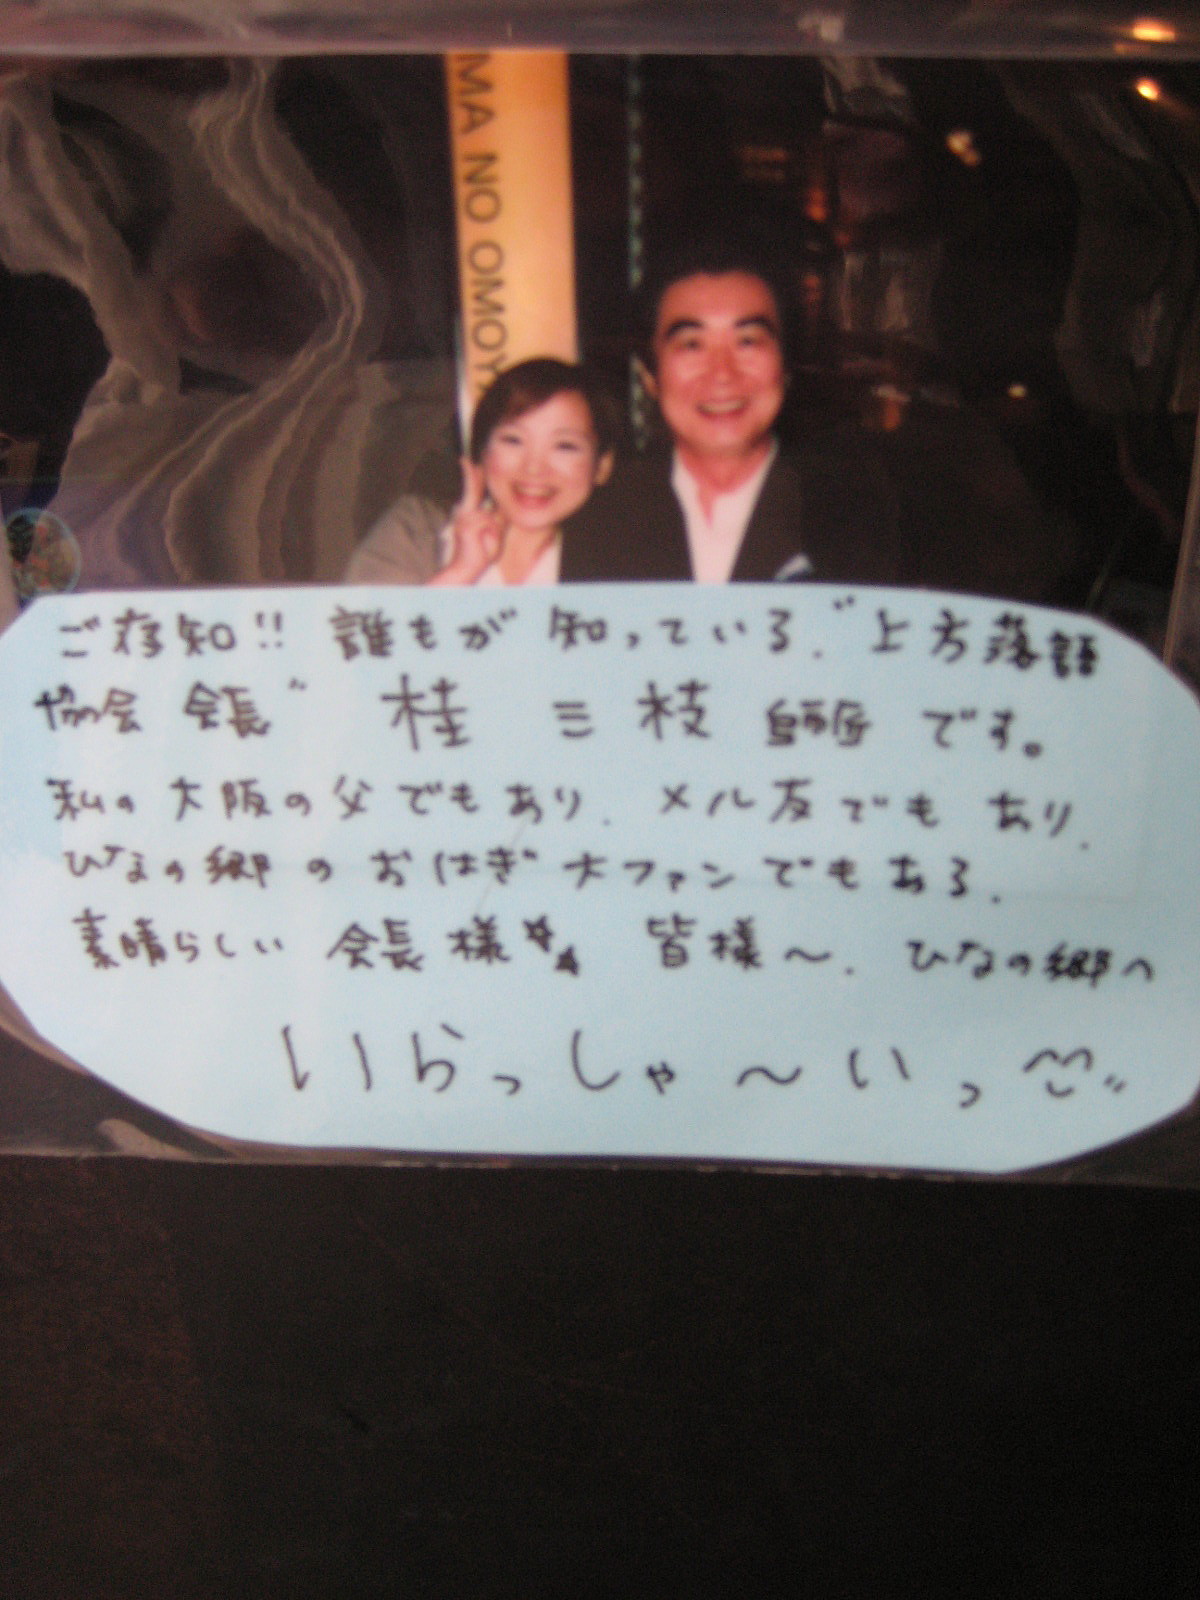 MA NO OMOYA
ご存知!! 誰もが 知っている、"上方落語
協会 会長" 桂 三 枝 師匠 です。
私の 大阪の父 でも あり、メル友でも あり、
ひなの郷 の おはぎ 大ファン でも ある、
素晴らしい 会長 様☆★ 皆様〜、ひなの郷へ
いらっしゃ〜いっ^^